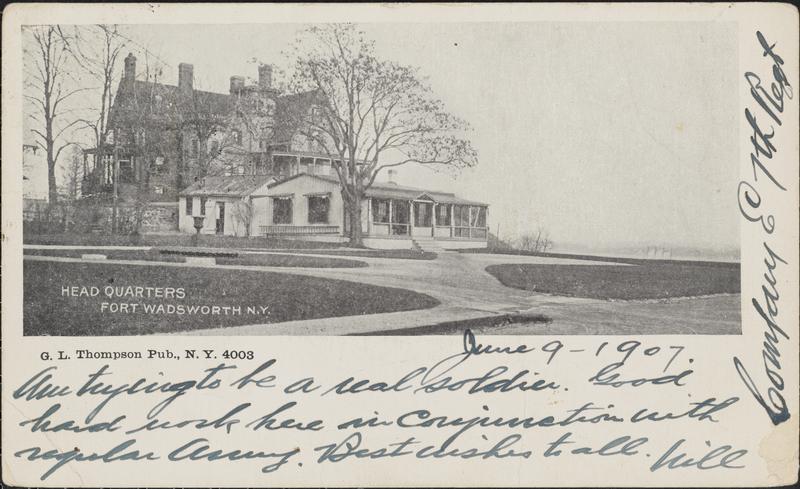 HEAD QUARTERS
FORT WADSWORTH N.Y.
G. L. Thompson Pub., N. Y. 4003
June 9 - 1907.
Am trying to be a real soldier. Good
hard work here in conjunction with
regular Army. Best wishes to all. Will
Company E 7th Regt